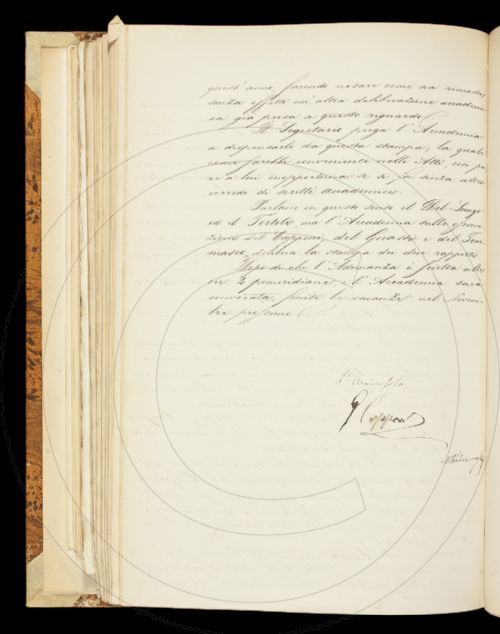 quest'anno, facendo notare come sia rimasta
senza effetto un'altra deliberazione accademi-
ca già presa a questo riguardo.
Il Segretario prega l'Accademia
a dispensarlo da questa stampa, la quale
sarebbe conveniente nelle Atti, così pa-
re a lui inopportuna se si fa senza altro
corredo di scritti Accademici.
Parlano in questo senso il Del Lungo
ed il Tortoli, ma l'Accademia sulla
del Capponi, del Guasti e del Tom-
maseo, delibera la stampa dei due rapporti.
Dopo di che l'Adunanza è sciolta alle
ore 2 pomeridiane, e l'Accademia sarà
convocata, finite le vacanze, nel Novem-
bre prossimo.
G Capponi